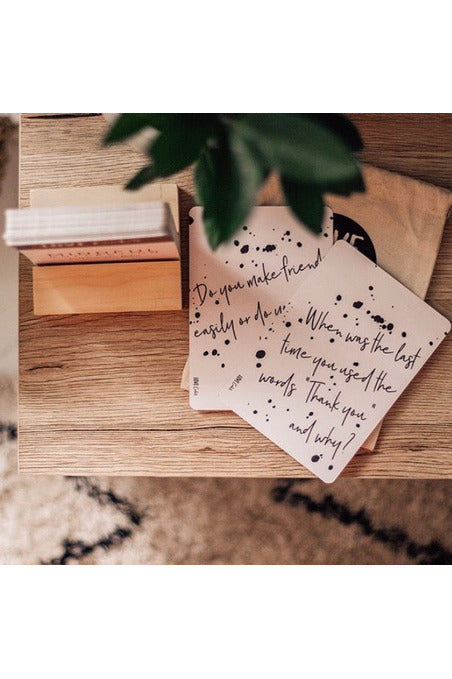 Do you make friend
easily or do u
When was the last
time you used the
words "Thank you"
and why?